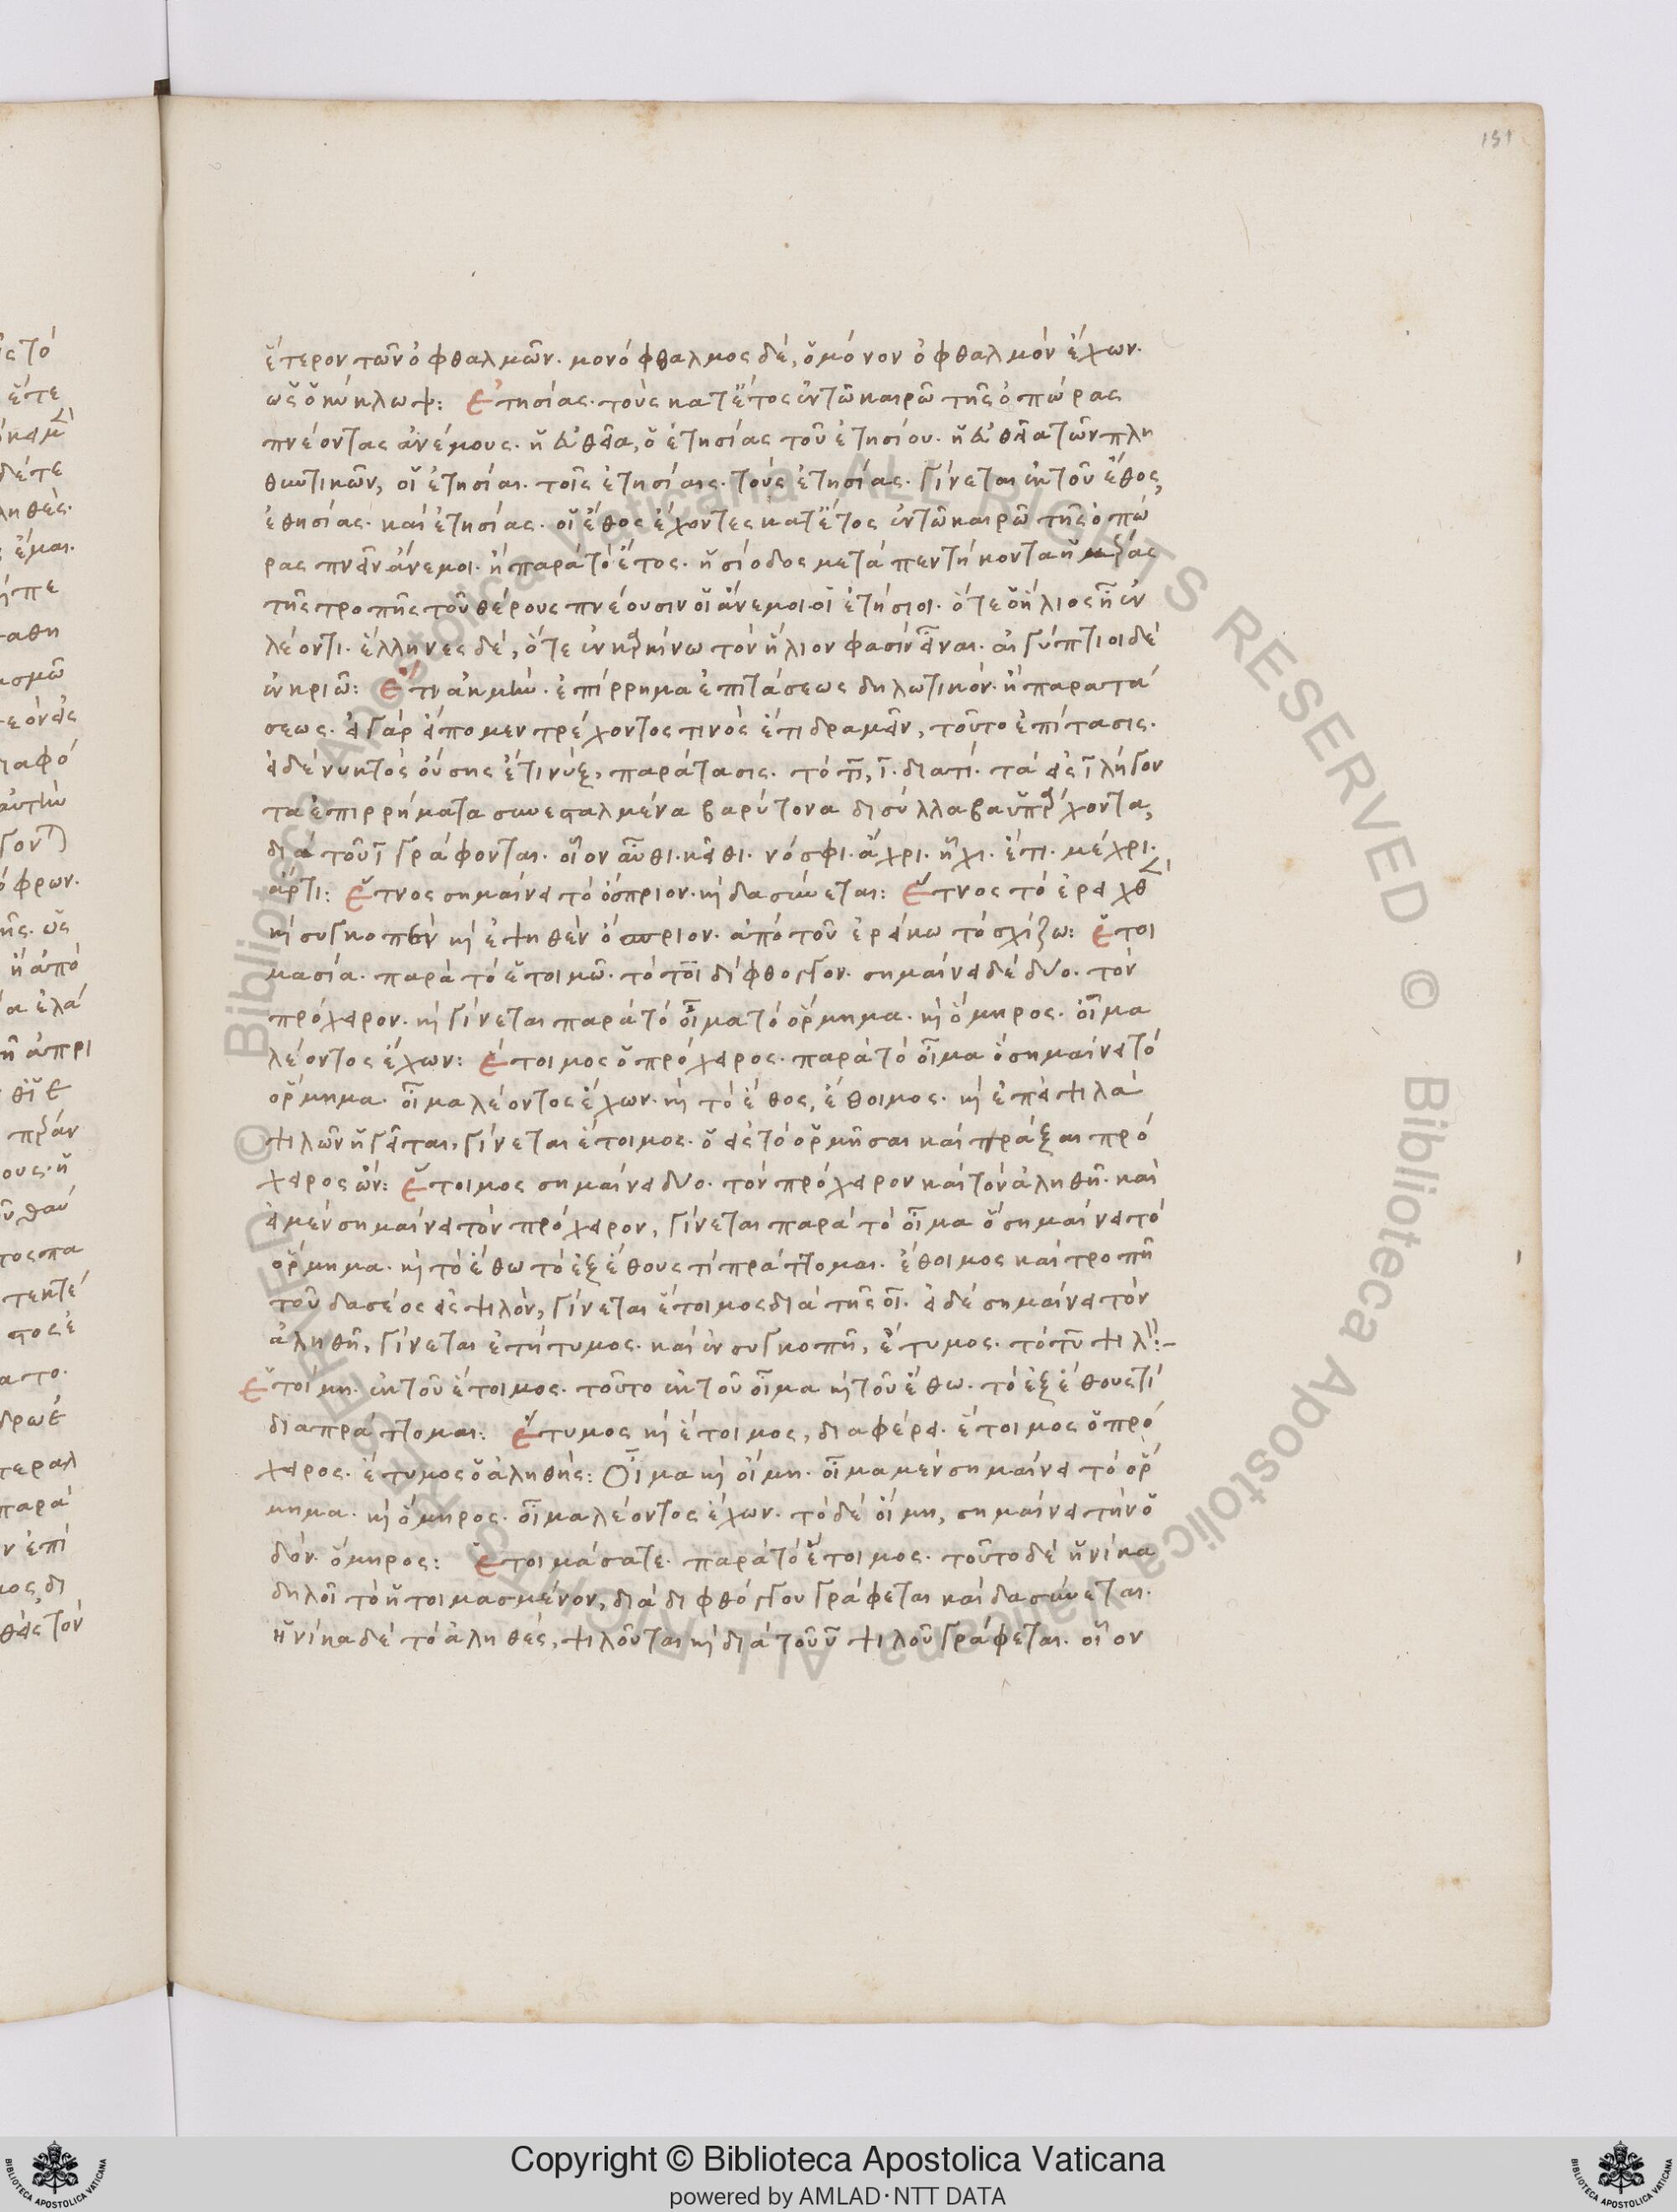 151
ἕτερον τῶν ὀφθαλμῶν. μονόφθαλμος δὲ, ὁ μόνον ὀφθαλμὸν ἔχων.
ὡς ὁ κύκλωψ: Ἐτησίας. τοὺς κατ' ἔτος ἐν τῶ καιρῶ τῆς ὀπώρας
πνέοντας ἀνέμους. ἡ εὐθεῖα, ὁ ἐτησίας τοῦ ἐτησίου. ἡ εὐθεῖα τῶν πλη
θυντικῶν, οἱ ἐτησίαι. τοῖς ἐτησίαις. τοὺς ἐτησίας. γίνεται ἐκ τοῦ ἔθος,
ἐθησίας. καὶ ἐτησίας. οἱ ἔθος ἔχοντες κατ' ἔτος ἐν τῶ καιρῶ τῆς ὀπώ
ρας πνεῖν ἄνεμοι. ἢ παρὰ τὸ ἔτος. ἡσίοδος μετὰ πεντήκοντα ἡμέρας
τῆς τροπῆς τοῦ θέρους πνέουσιν οἱ ἄνεμοι οἱ ἐτήσιοι. ὅτε ὁ ἥλιος ἦ ἐν
λέοντι. ἕλληνες δὲ, ὅτε ἐν καρκίνω τὸν ἥλιον φασὶν εἶναι. αἰγύπτιοι δὲ
ἐν κριῶ: Ἔτι ἀκμὴν. ἐπίρρημα ἐπιτάσεως δηλωτικόν. ἢ παρατά
σεως. εἰ γὰρ εἴπομεν τρέχοντος τινὸς ἔτι δραμεῖν, τοῦτο ἐπίτασις.
εἰ δὲ νυκτὸς οὔσης ἔτι νὺξ, παράτασις. τὸ τι, ι. διατί. τὰ εἰς ι λήγον
τα ἐπιρρήματα συνεσταλμένα βαρύτονα δισύλλαβα ὑπάρχοντα,
διὰ τοῦ ι γράφονται. οἷον αὖθι. κεῖθι. νόσφι. ἄχρι. ἧχι. ἔτι. μέχρι.
ἄρτι: Ἔτνος σημαίνει τὸ ὄσπριον. καὶ δασύνεται: Ἔτνος τὸ ἐρειχθὲν
καὶ συγκοπὲν καὶ ἑψηθὲν ὄσπριον. ἀπὸ τοῦ ἐρείκω τὸ σχίζω: Ἑτοι
μασία. παρὰ τὸ ἑτοιμῶ. τὸ τοι δίφθογγον. σημαίνει δὲ δύο. τὸν
πρόχειρον. καὶ γίνεται παρὰ τὸ οἷμα τὸ ὅρμημα. καὶ ὅμηρος. οἷμα
λέοντος ἔχων: Ἕτοιμος ὁ πρόχειρος. παρὰ τὸ οἷμα ὃ σημαίνει τὸ
ὅρμημα. οἷμα λέοντος ἔχων. καὶ τὸ ἔθος, ἔθοιμος. καὶ ἐπεὶ ψιλὰ
ψιλῶν ἡγεῖται, γίνεται ἕτοιμος. ὁ εἰς τὸ ὁρμῆσαι καὶ πράξαι πρό
χειρος ὤν: Ἕτοιμος σημαίνει δύο. τὸν πρόχειρον καὶ τὸν ἀληθῆ. καὶ
εἰ μὲν σημαίνει τὸν πρόχειρον, γίνεται παρὰ τὸ οἷμα ὃ σημαίνει τὸ
ὅρμημα. καὶ τὸ ἔθω τὸ ἐξ ἔθους τί πράττομαι. ἔθοιμος καὶ τροπῆ
τοῦ δασέος εἰς ψιλὸν, γίνεται ἕτοιμος διὰ τῆς οι. εἰ δὲ σημαίνει τὸν
ἀληθῆ, γίνεται ἐτήτυμος. καὶ ἐν συγκοπῆ, ἔτυμος. τὸ τυ ψιλόν:-
Ἑτοίμη. ἐκ τοῦ ἕτοιμος. τοῦτο ἐκ τοῦ οἷμα καὶ τοῦ ἔθω. τὸ ἐξ ἔθους τί
διαπράττομαι: Ἔτυμος καὶ ἕτοιμος, διαφέρει. ἕτοιμος ὁ πρό
χειρος. ἔτυμος ὁ ἀληθής: Οἷμα καὶ οἴμη. οἷμα μὲν σημαίνει τὸ ὅρ
μημα. καὶ ὅμηρος. οἷμα λέοντος ἔχων. τὸ δὲ οἴμη, σημαίνει τὴν ὁ
δόν. ὅμηρος: Ἑτοιμάσατε. παρὰ τὸ ἕτοιμος. τοῦτο δὲ ἡνίκα
δηλοῖ τὸ ἡτοιμασμένον, διὰ διφθόγγου γράφεται καὶ δασύνεται.
ἡνίκα δὲ τὸ ἀληθές, ψιλοῦται καὶ διὰ τοῦ υ ψιλοῦ γράφεται. οἷον
Copyright © Biblioteca Apostolica Vaticana
powered by AMLAD·NTT DATA